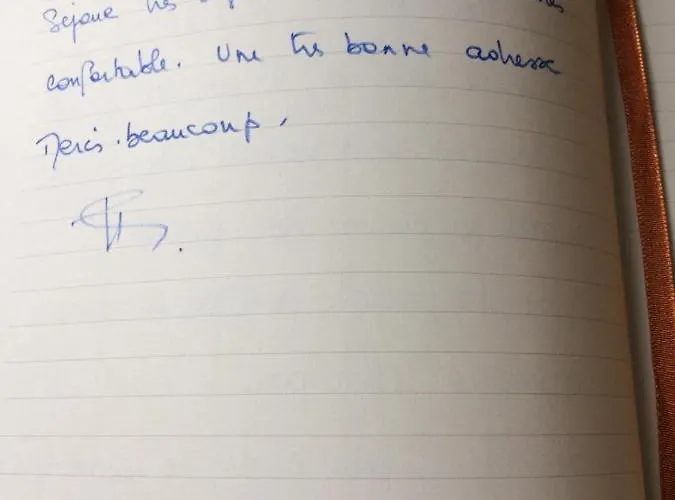 Sejour très
confortable. Une très bonne adresse
Merci beaucoup,